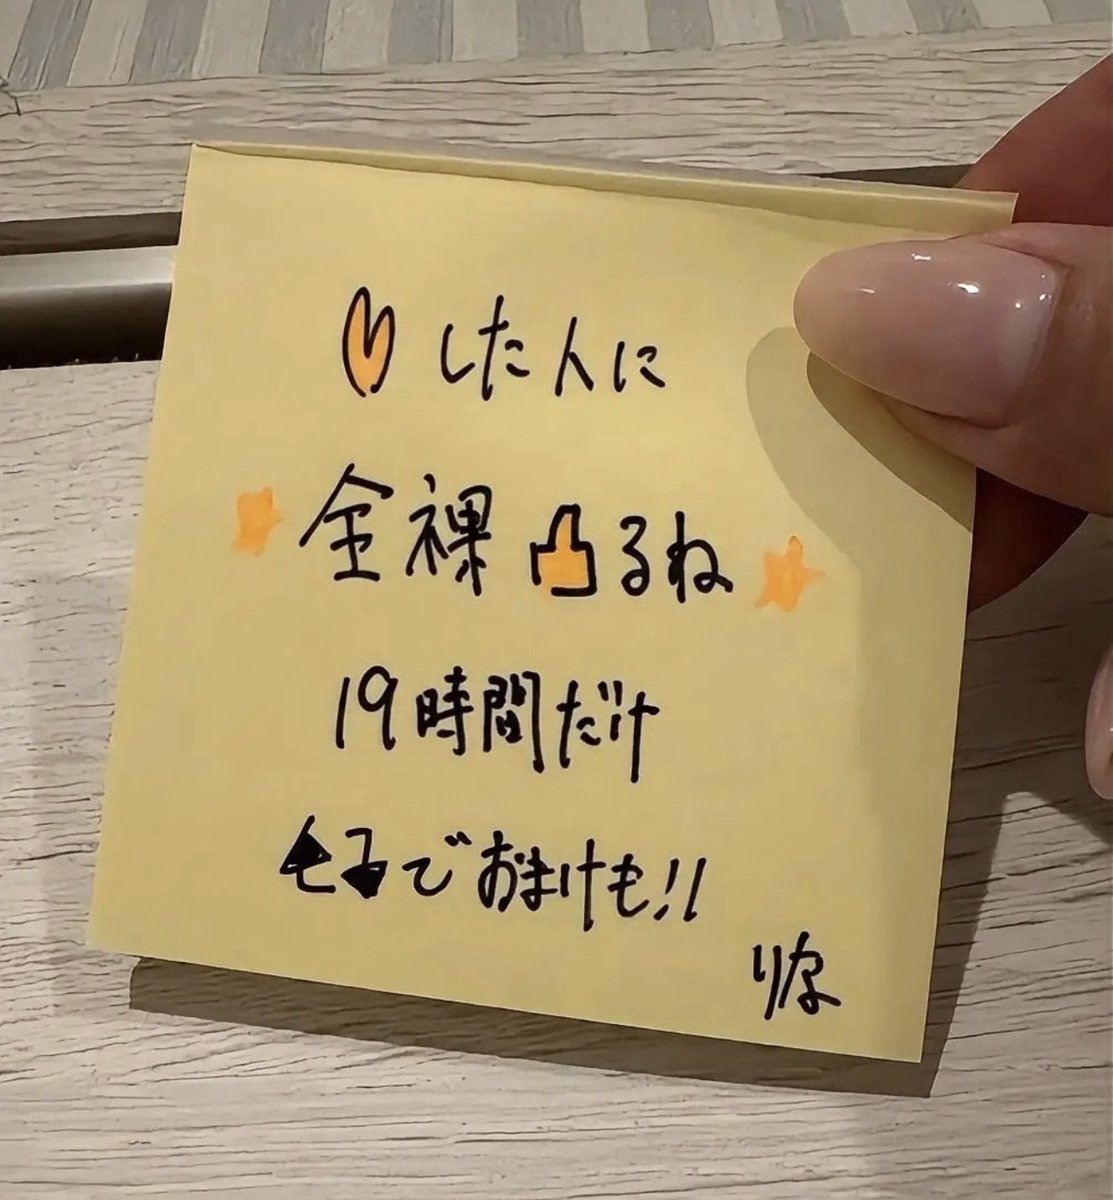 した人に
全裸凸るね
19時間だけ
でおまけも!!
りな